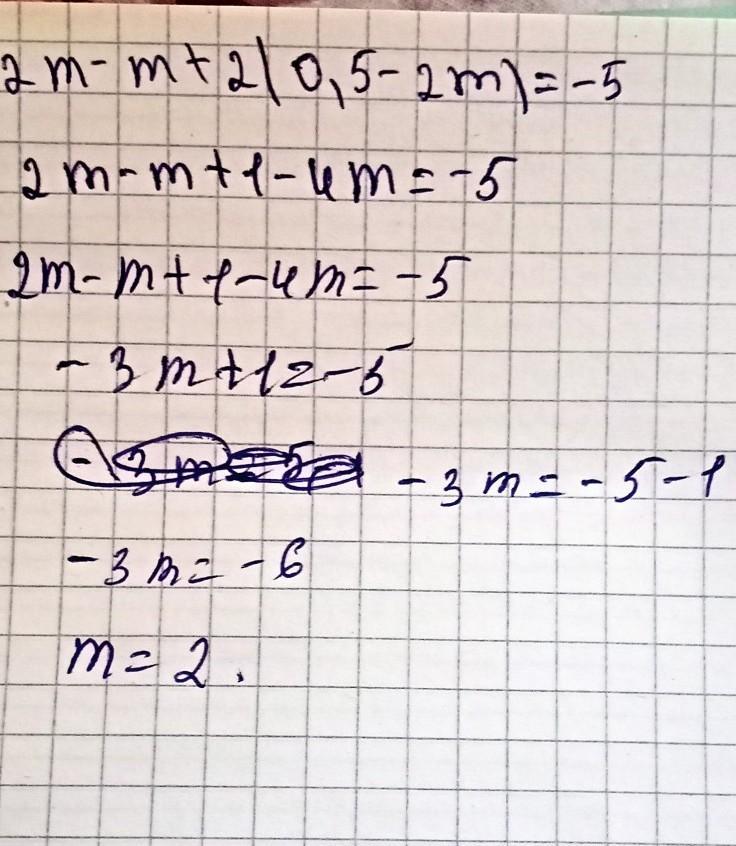 2m-m+2(0,5-2m)=-5
2m-m+1-4m=-5
2m-m+1-4m=-5
-3m+1=-5
-3m=-5-1
-3m=-6
m=2.